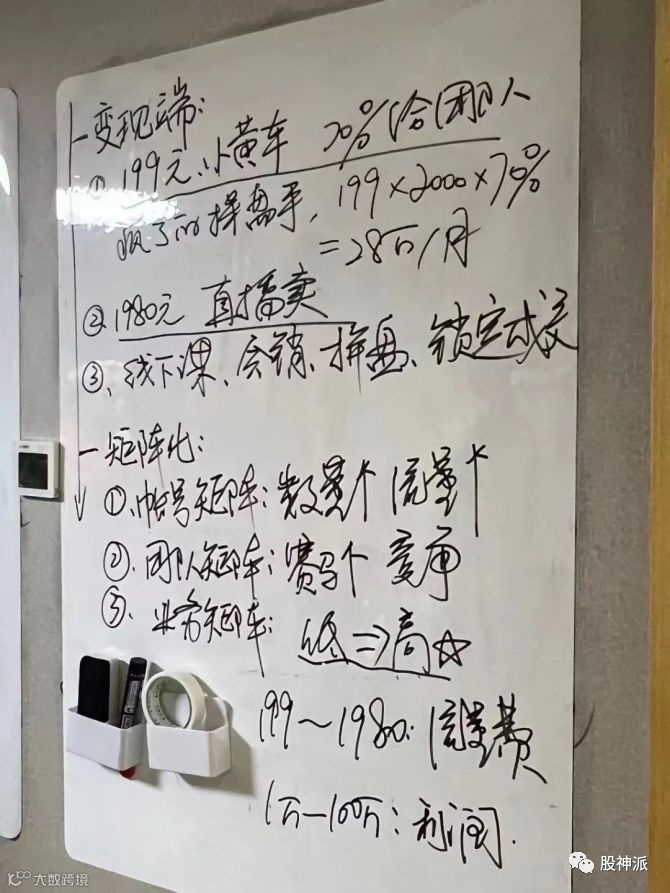 一变现端：
① 199元小黄车 70%给团队
疯了的操盘手，199×2000×70%
=28万/月
② 1980元 直播卖
③、线下课、会销、操盘、锁定成交
一矩阵化：
①、帐号矩阵：数量↑ 流量↑
②、团队矩阵：赛马↑ 竞争
③、业务矩阵：低⇒高☆
199～1980：流量费
1万—100万：利润.
大数跨境
股神派